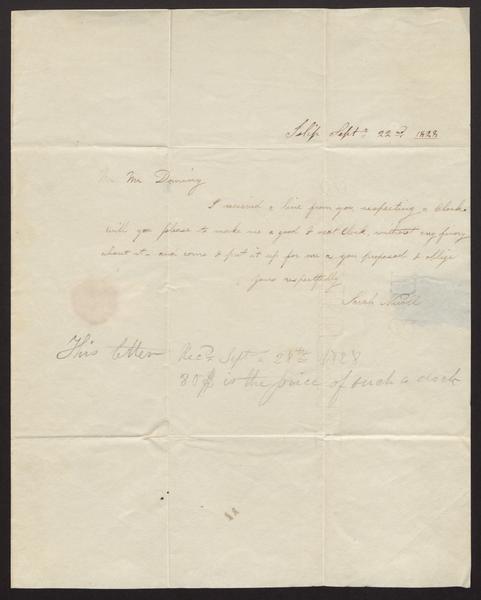 Islip Septr 22nd 1828
Mr Dominy
I received a line from you, respecting a Clock
will you please to make me a good & neat Clock, without any finery
about it - and come & put it up for me as you proposed & oblige
yours respectfully
Sarah Nicoll
This letter Recd Septr 28th 1828
30 $ is the price of such a clock